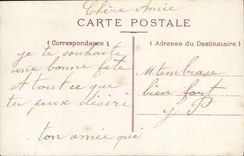 Chère Amie
CARTE POSTALE
(Correspondance)
(Adresse du Destinataire)
je te souhaite
une bonne fête
et tout ce que
tu peux désiré
ton amie qui
t'embrase
bien fort
y P